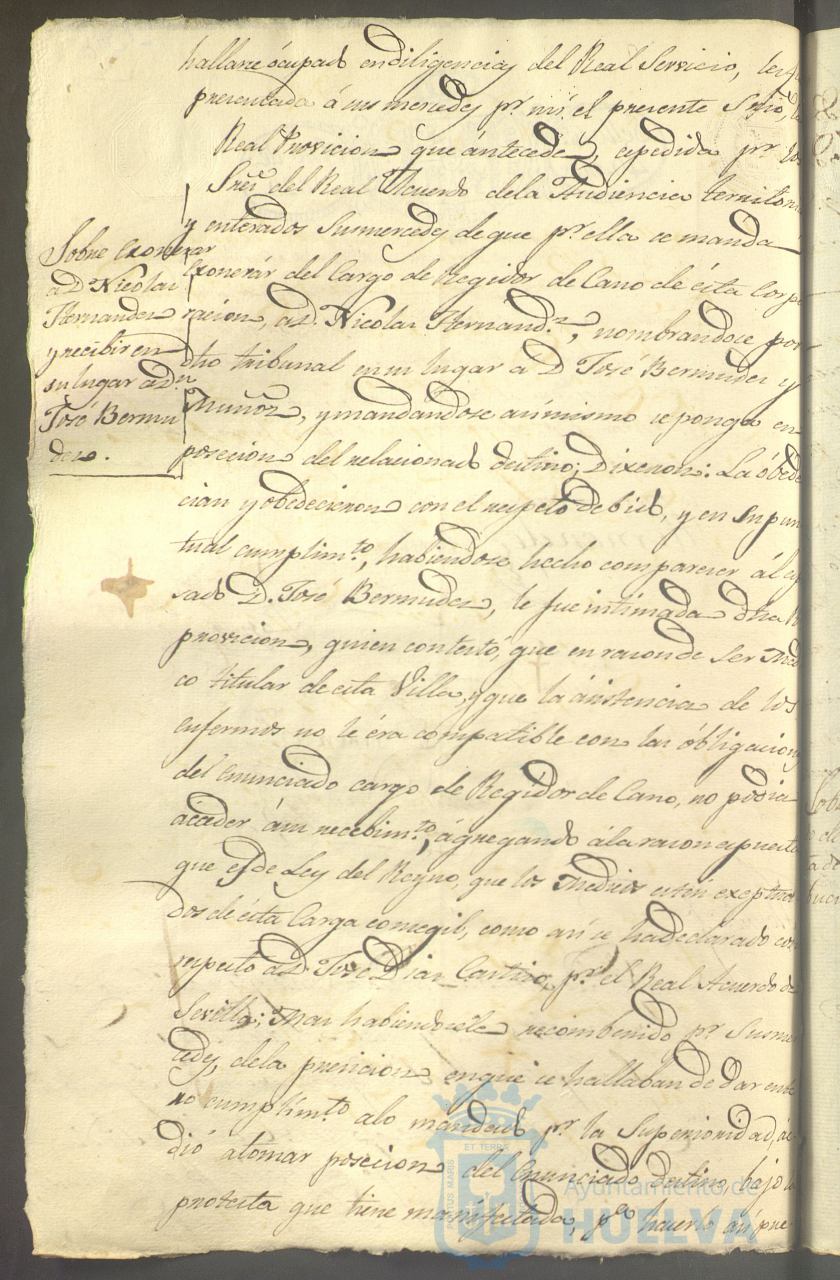 hallarse ócupados endiligencias del Real Servicio,
presentada á sus mercedes pr. mi el presente Srio,
Real Provicion que ántecede, expedida pr. los
Sres. del Real Acuerdo dela Audiencia territoria
y enterados Susmercedes de que pr. ella se manda
exonerár del Cargo de Regidor de Cano de ésta Corpo
racion, a D. Nicolas Hernandz., nombrandose por
dho tribunal en su lugar a D José Bermudez y
Muñoz, y mandandose asimismo se ponga en
posecion del relacionado destino; Dixeron: La óbede
cian y obedecieron con el respeto debido, y en su pun
tual cumplimto., habiendose hecho comparecer ál expre
sado D. José Bermudez, le fue intimada dha R
provicion, quien contestó, que en razon de Ser Medi
co titular de esta Villa, y que la ásistencia de los
enfermos no le éra compatible con las óbligaciones
del enunciado cargo de Regidor de Cano, no podia
acceder á su recebimto., ágregando á la razon expuesta
que es de Ley del Reyno, que los Medicos esten exeptua
dos de ésta Carga consegil, como asi se ha declarado con
respecto a D. José Diaz Cantizo, pr. el Real Acuerdo de
Sevilla; Mas habiendosele recombenido pr. Susmer
cedes, dela presicion en que se hallaban de dar ente
ro cumplimto. alo mandado pr. la Superioridad, ác
dió atomar posecion del enunciado destino, bajo la
protesta que tiene manifestada, pa. hacerlo asi pre
Sobre exonerar
a D. Nicolas
Hernandez
y recibir en
su lugar a Dn
José Bermu
dez.
ET TERRA
US MARIS
Ayuntamiento de
HUELVA